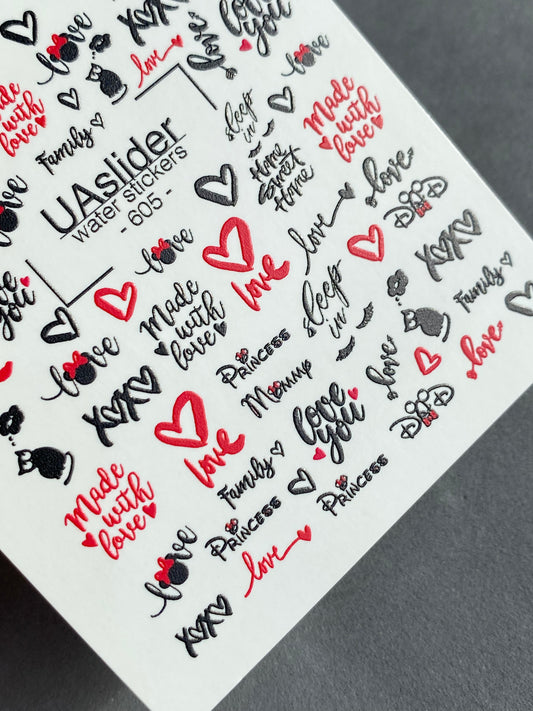 love
XOXO
love
you
love
love
love
Made
with
love
Family
love
sleep
in
Made
with
love
UAslider
water stickers
- 605 -
Home
Sweet
Home
love
love
DAD
XOXO
love
you
love
love
Made
with
love
sleep
in
Family
love
XOXO
PRINCESS
Mommy
love
love
DAD
love
love
you
Made
with
love
Family
PRINCESS
PRINCESS
love
love
XOXO